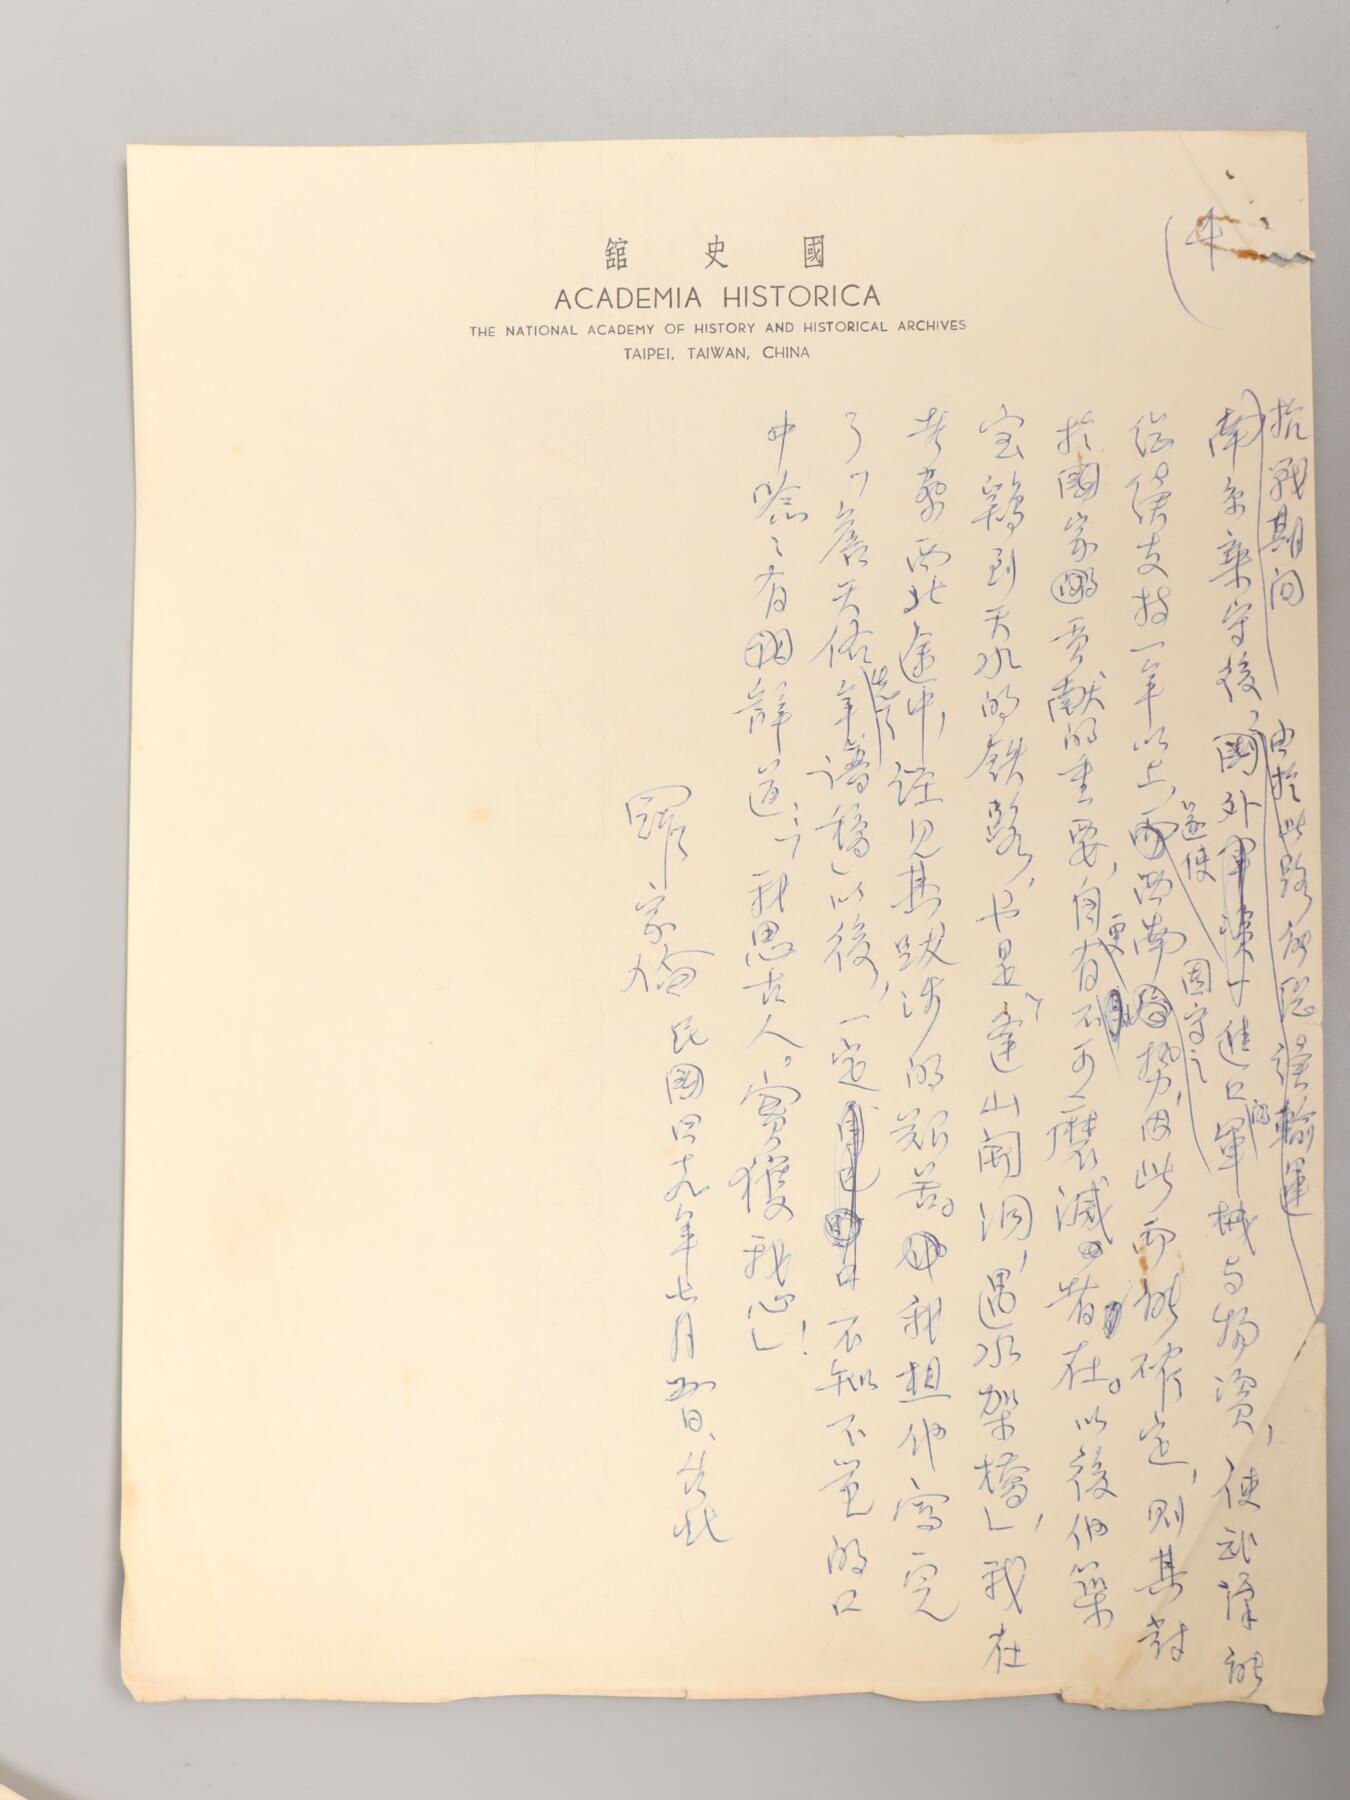 國史館
ACADEMIA HISTORICA
THE NATIONAL ACADEMY OF HISTORY AND HISTORICAL ARCHIVES
TAIPEI, TAIWAN, CHINA
4
抗戰期间 由於此路的繼續輸運
南京棄守後,國外進口的軍械与物資,使武漢能
继續支持一年以上,遂使西南固守之勢,因此而能確定,則其對
於國家貢獻的重要,自有更不可磨滅者在。以後他築
宝鷄到天水的鉄路,也是「逢山開洞,遇水架橋」,我在
考察西北途中,经見其跋涉的艱苦。我想他寫完
了「詹天佑先生年譜稿」以後,一定不知不覺的口
中唸唸有辭道:「我思古人。實獲我心」!
羅家倫 民國四十九年七月 日,台北